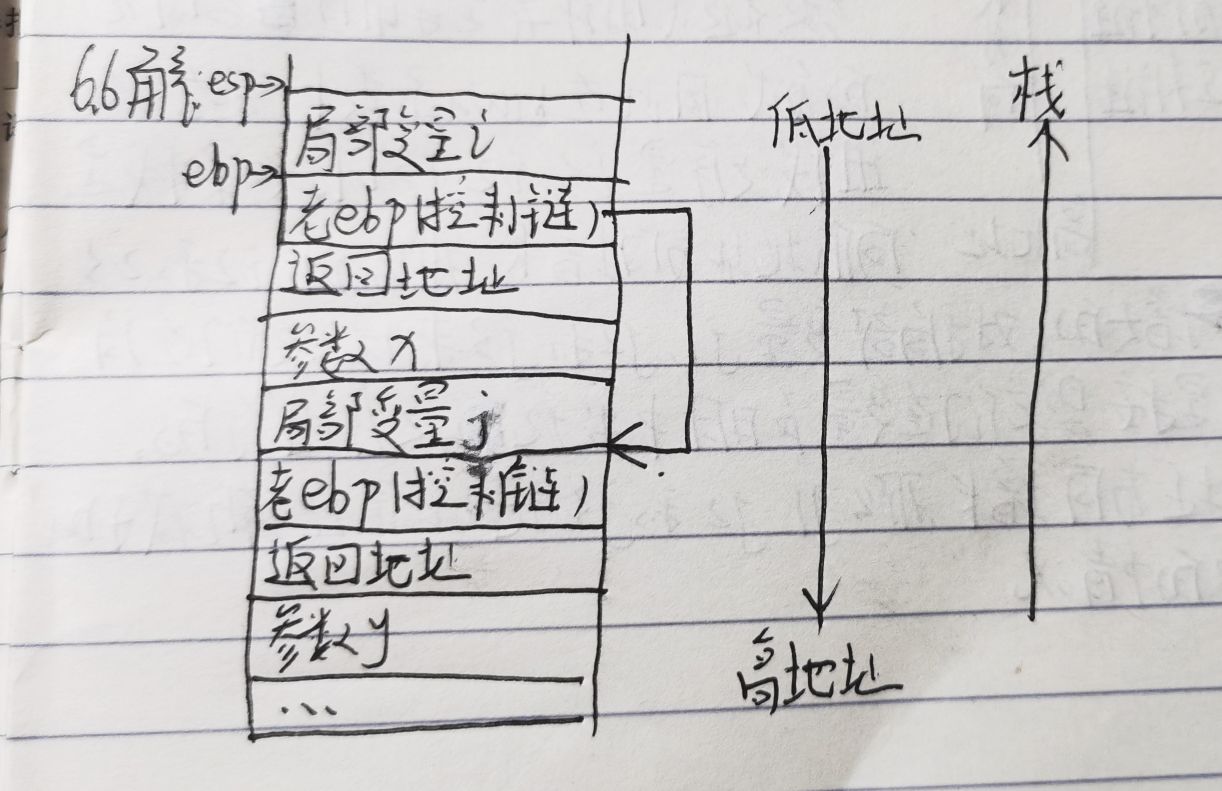 6.6解: esp→
低地址
栈
局部变量i
ebp→
老ebp(控制链)
返回地址
参数x
局部变量j
老ebp(控制链)
返回地址
参数y
高地址
...